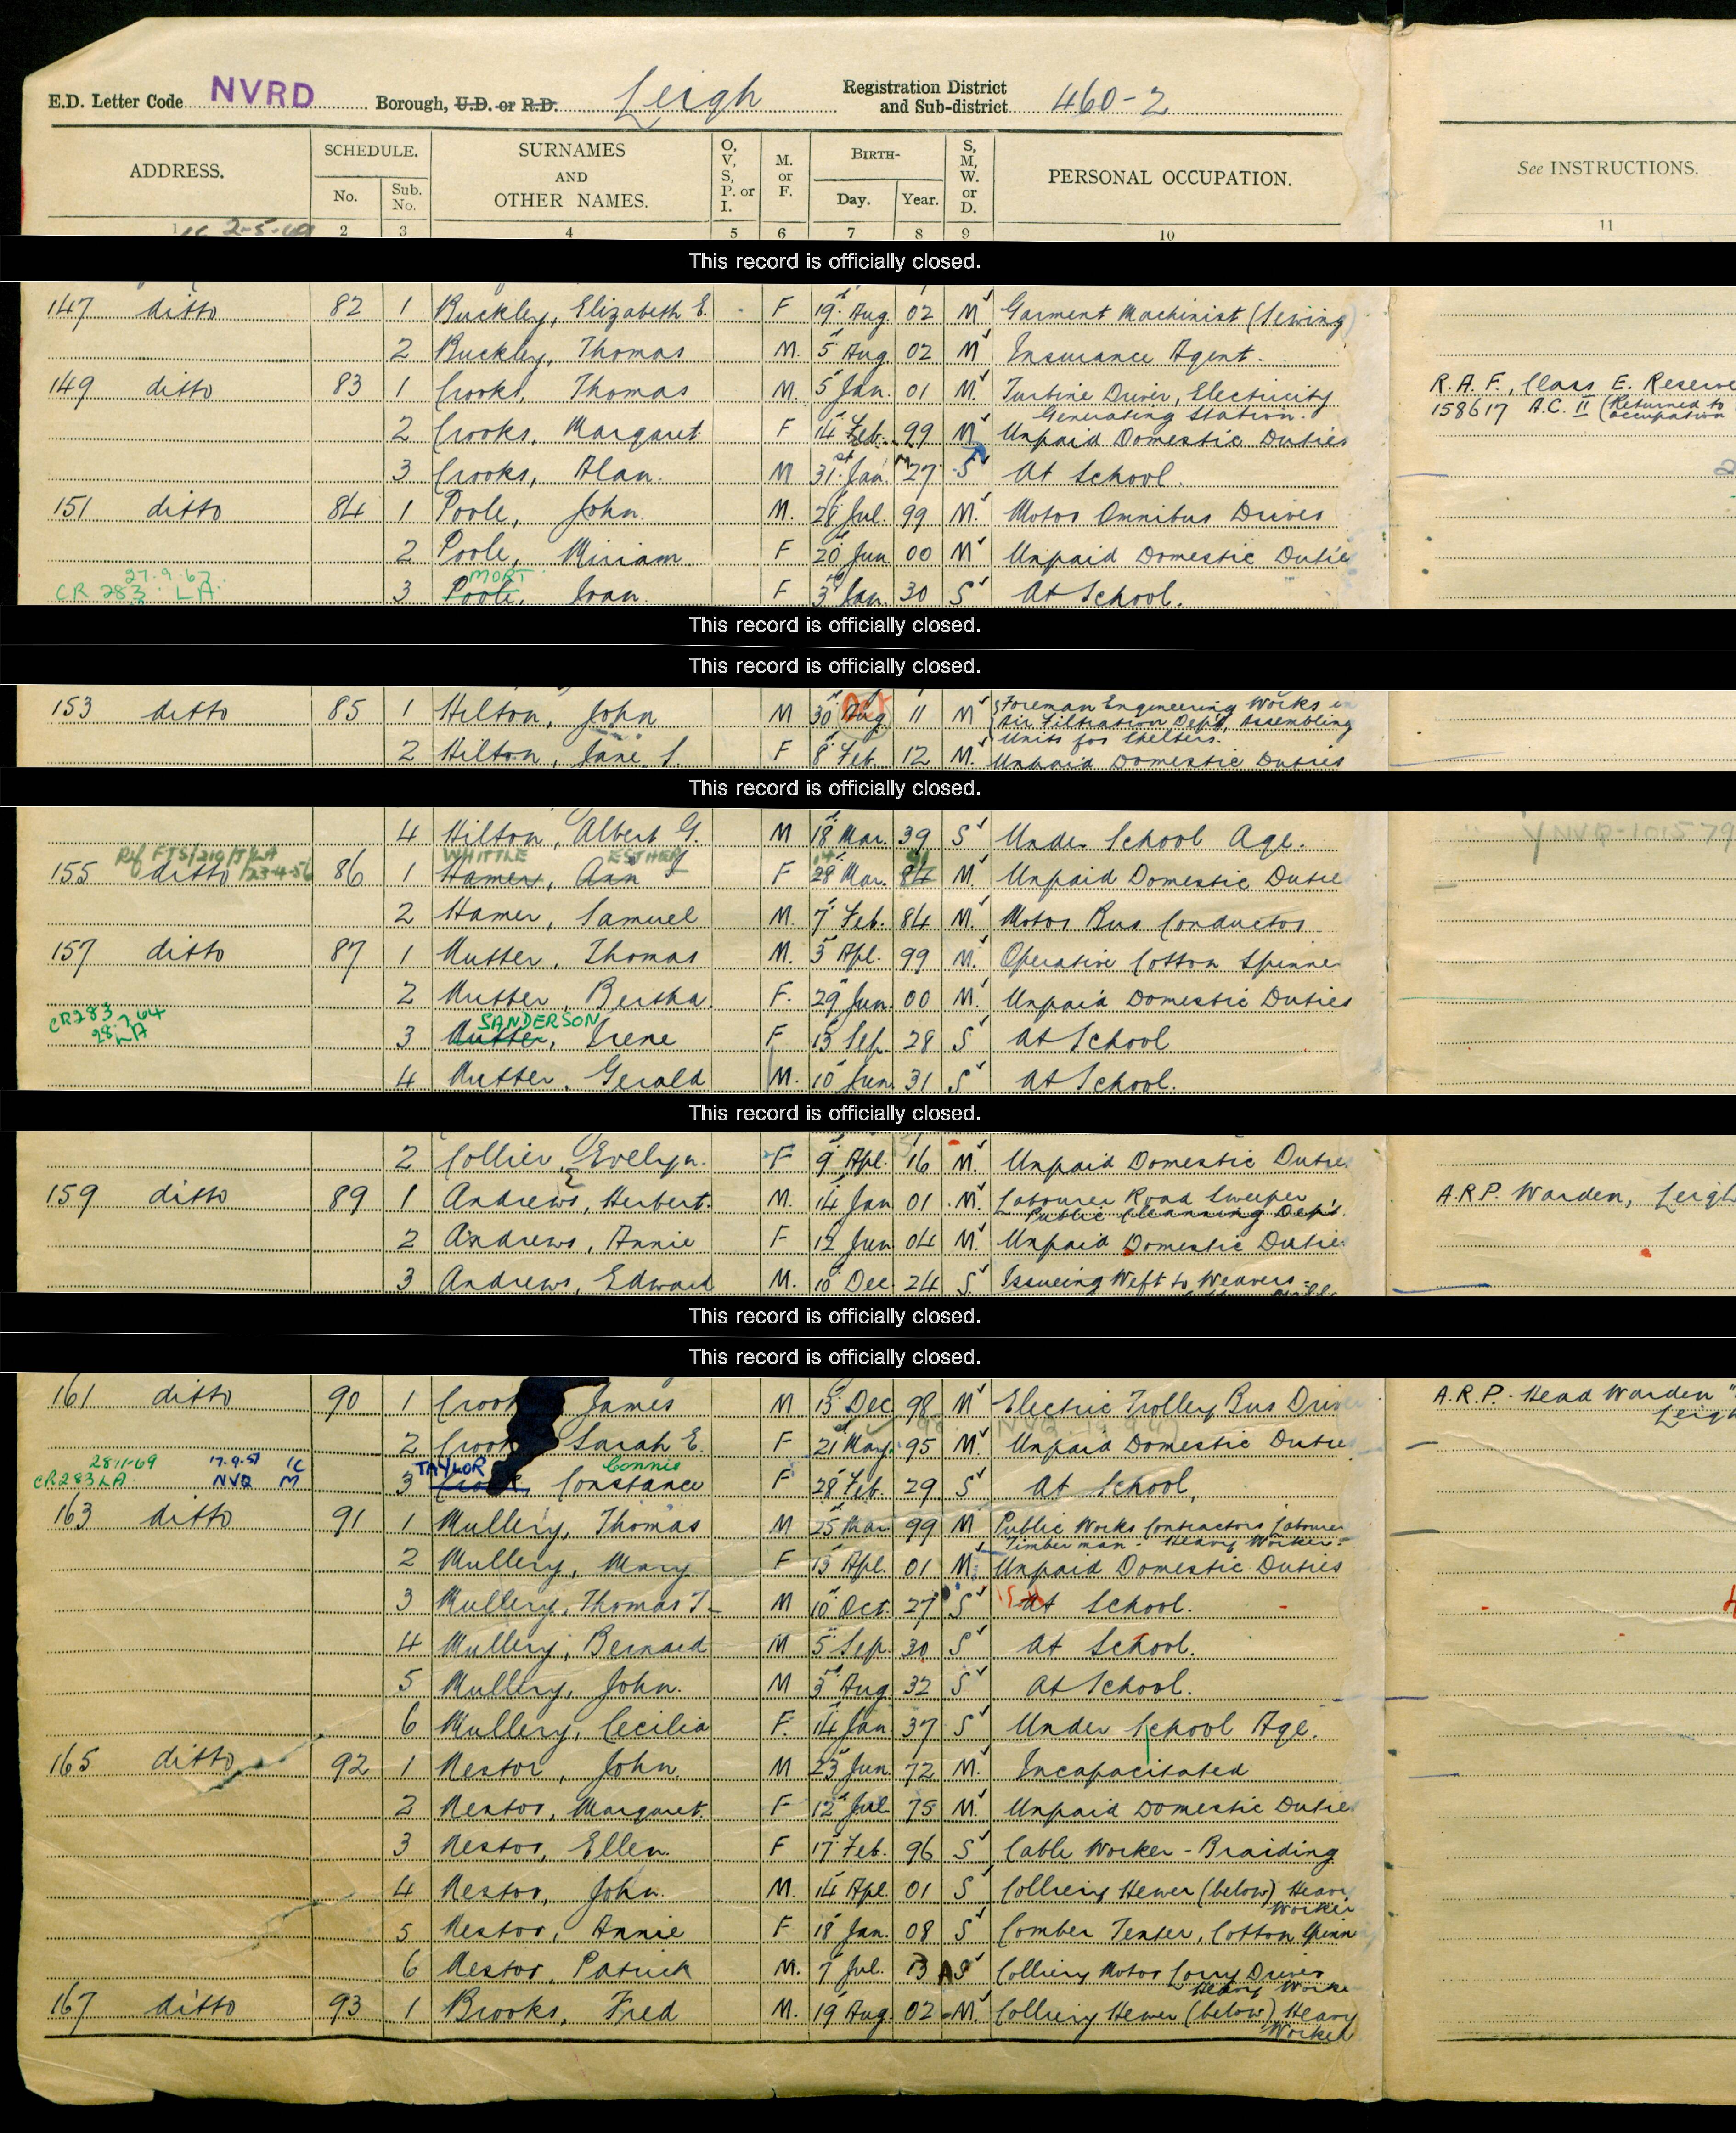 E.D. Letter Code NVRD Borough, U.D. or R.D. Leigh Registration District and Sub-district 460-2
ADDRESS. SCHEDULE. No. Sub. No. SURNAMES AND OTHER NAMES. O, V, S, P. or I. M. or F. BIRTH- Day. Year. S, M, W. or D. PERSONAL OCCUPATION. See INSTRUCTIONS.
1 2 3 4 5 6 7 8 9 10 11
2-5-
This record is officially closed.
147 ditto 82 1 Buckley, Elizabeth E. F 19 Aug 02 M Garment Machinist (Sewing)
2 Buckley, Thomas M. 5 Aug 02 M Insurance Agent.
149 ditto 83 1 Crooks, Thomas M. 5 Jan 01 M. Turbine Driver, Electricity R.A.F., Class E. Reserve
Generating Station. 158617 A.C. II (Returned to occupation
2 Crooks, Margaret F 14 Feb. 99 M. Unpaid Domestic Duties
3 Crooks, Alan. M 31st Jan 27 S At School.
151 ditto 84 1 Poole, John. M. 28 Jul. 99 M. Motor Omnibus Driver
2 Poole, Miriam. F 20 Jun 00 M Unpaid Domestic Dutie
27.9.67 MORT
CR 283 LA 3 Poole, Joan. F 3rd Jan. 30 S At School.
This record is officially closed.
This record is officially closed.
153 ditto 85 1 Hilton, John M 30 Aug Oct 11 M Foreman Engineering Works in
Air Filtration Dept, Assembling
Units for Shelters.
2 Hilton, Jane S. F 8 Feb. 12 M. Unpaid Domestic Duties
This record is officially closed.
4 Hilton, Albert G. M 18 Mar. 39 S Under School Age.
WHITTLE ESTHER
155 ditto 23-4-56 86 1 Hamer, Ann F 28 Mar. 84 M. Unpaid Domestic Dutie
2 Hamer, Samuel M. 7 Feb. 84 M. Motor Bus Conductor
157 ditto 87 1 Mutter, Thomas M. 3 Apl. 99 M. Operative Cotton Spinne
2 Mutter, Bertha. F. 29 Jun. 00 M. Unpaid Domestic Duties
CR283 28.7.64 LA SANDERSON
3 Mutter, Irene F 13 Sep. 28 S At School
4 Mutter, Gerald M. 10 Jun. 31 S At School.
This record is officially closed.
2 Collier, Evelyn. F 9 Apl. 16 M. Unpaid Domestic Dutie
159 ditto 89 1 Andrews, Herbert. M. 14 Jan 01 M. Labourer Road Sweeper A.R.P. Warden, Leigh
Public Cleansing Dept.
2 Andrews, Annie F 12 Jun 04 M. Unpaid Domestic Dutie
3 Andrews, Edward M. 10 Dec 24 S. Issueing Weft to Weavers
This record is officially closed.
This record is officially closed.
161 ditto 90 1 Crook James M 13 Dec 98 M Electric Trolley Bus Drive A.R.P. Head Warden
Leigh
2 Crook Sarah E. F 21 May. 95 M. Unpaid Domestic Dutie
28.11.69 17.9.57 IC TAYLOR Connie
CR283 LA NVQ M 3 Crook Constance F 28 Feb. 29 S At School,
163 ditto 91 1 Mullery, Thomas M 25 Mar 99 M Public Works Contractors Labourer
Timber man - Heavy Worker -
2 Mullery, Mary F 13 Apl. 01 M. Unpaid Domestic Duties
3 Mullery, Thomas T. M 10 Oct. 27 S At School.
4 Mullery, Bernard M 5 Sep. 30 S At School.
5 Mullery, John. M 3rd Aug 32 S At School.
6 Mullery, Cecilia F. 14 Jan 37 S Under School Age.
165 ditto 92 1 Nestor, John. M 23 Jun. 72 M. Incapacitated
2 Nestor, Margaret. F 12 Jul 75 M. Unpaid Domestic Dutie
3 Nestor, Ellen. F 17 Feb. 96 S Cable Worker - Braiding
4 Nestor, John. M. 14 Apl. 01 S Colliery Hewer (below) Heavy
Worker
5 Nestor, Annie F 18 Jan. 08 S Comber Tenter, Cotton Spinn
6 Nestor, Patrick M. 7 Jul. 13 S Colliery Motor Lorry Driver
Heavy Worke
167 ditto 93 1 Brooks, Fred M. 19 Aug 02 M. Colliery Hewer (below) Heavy
Worker